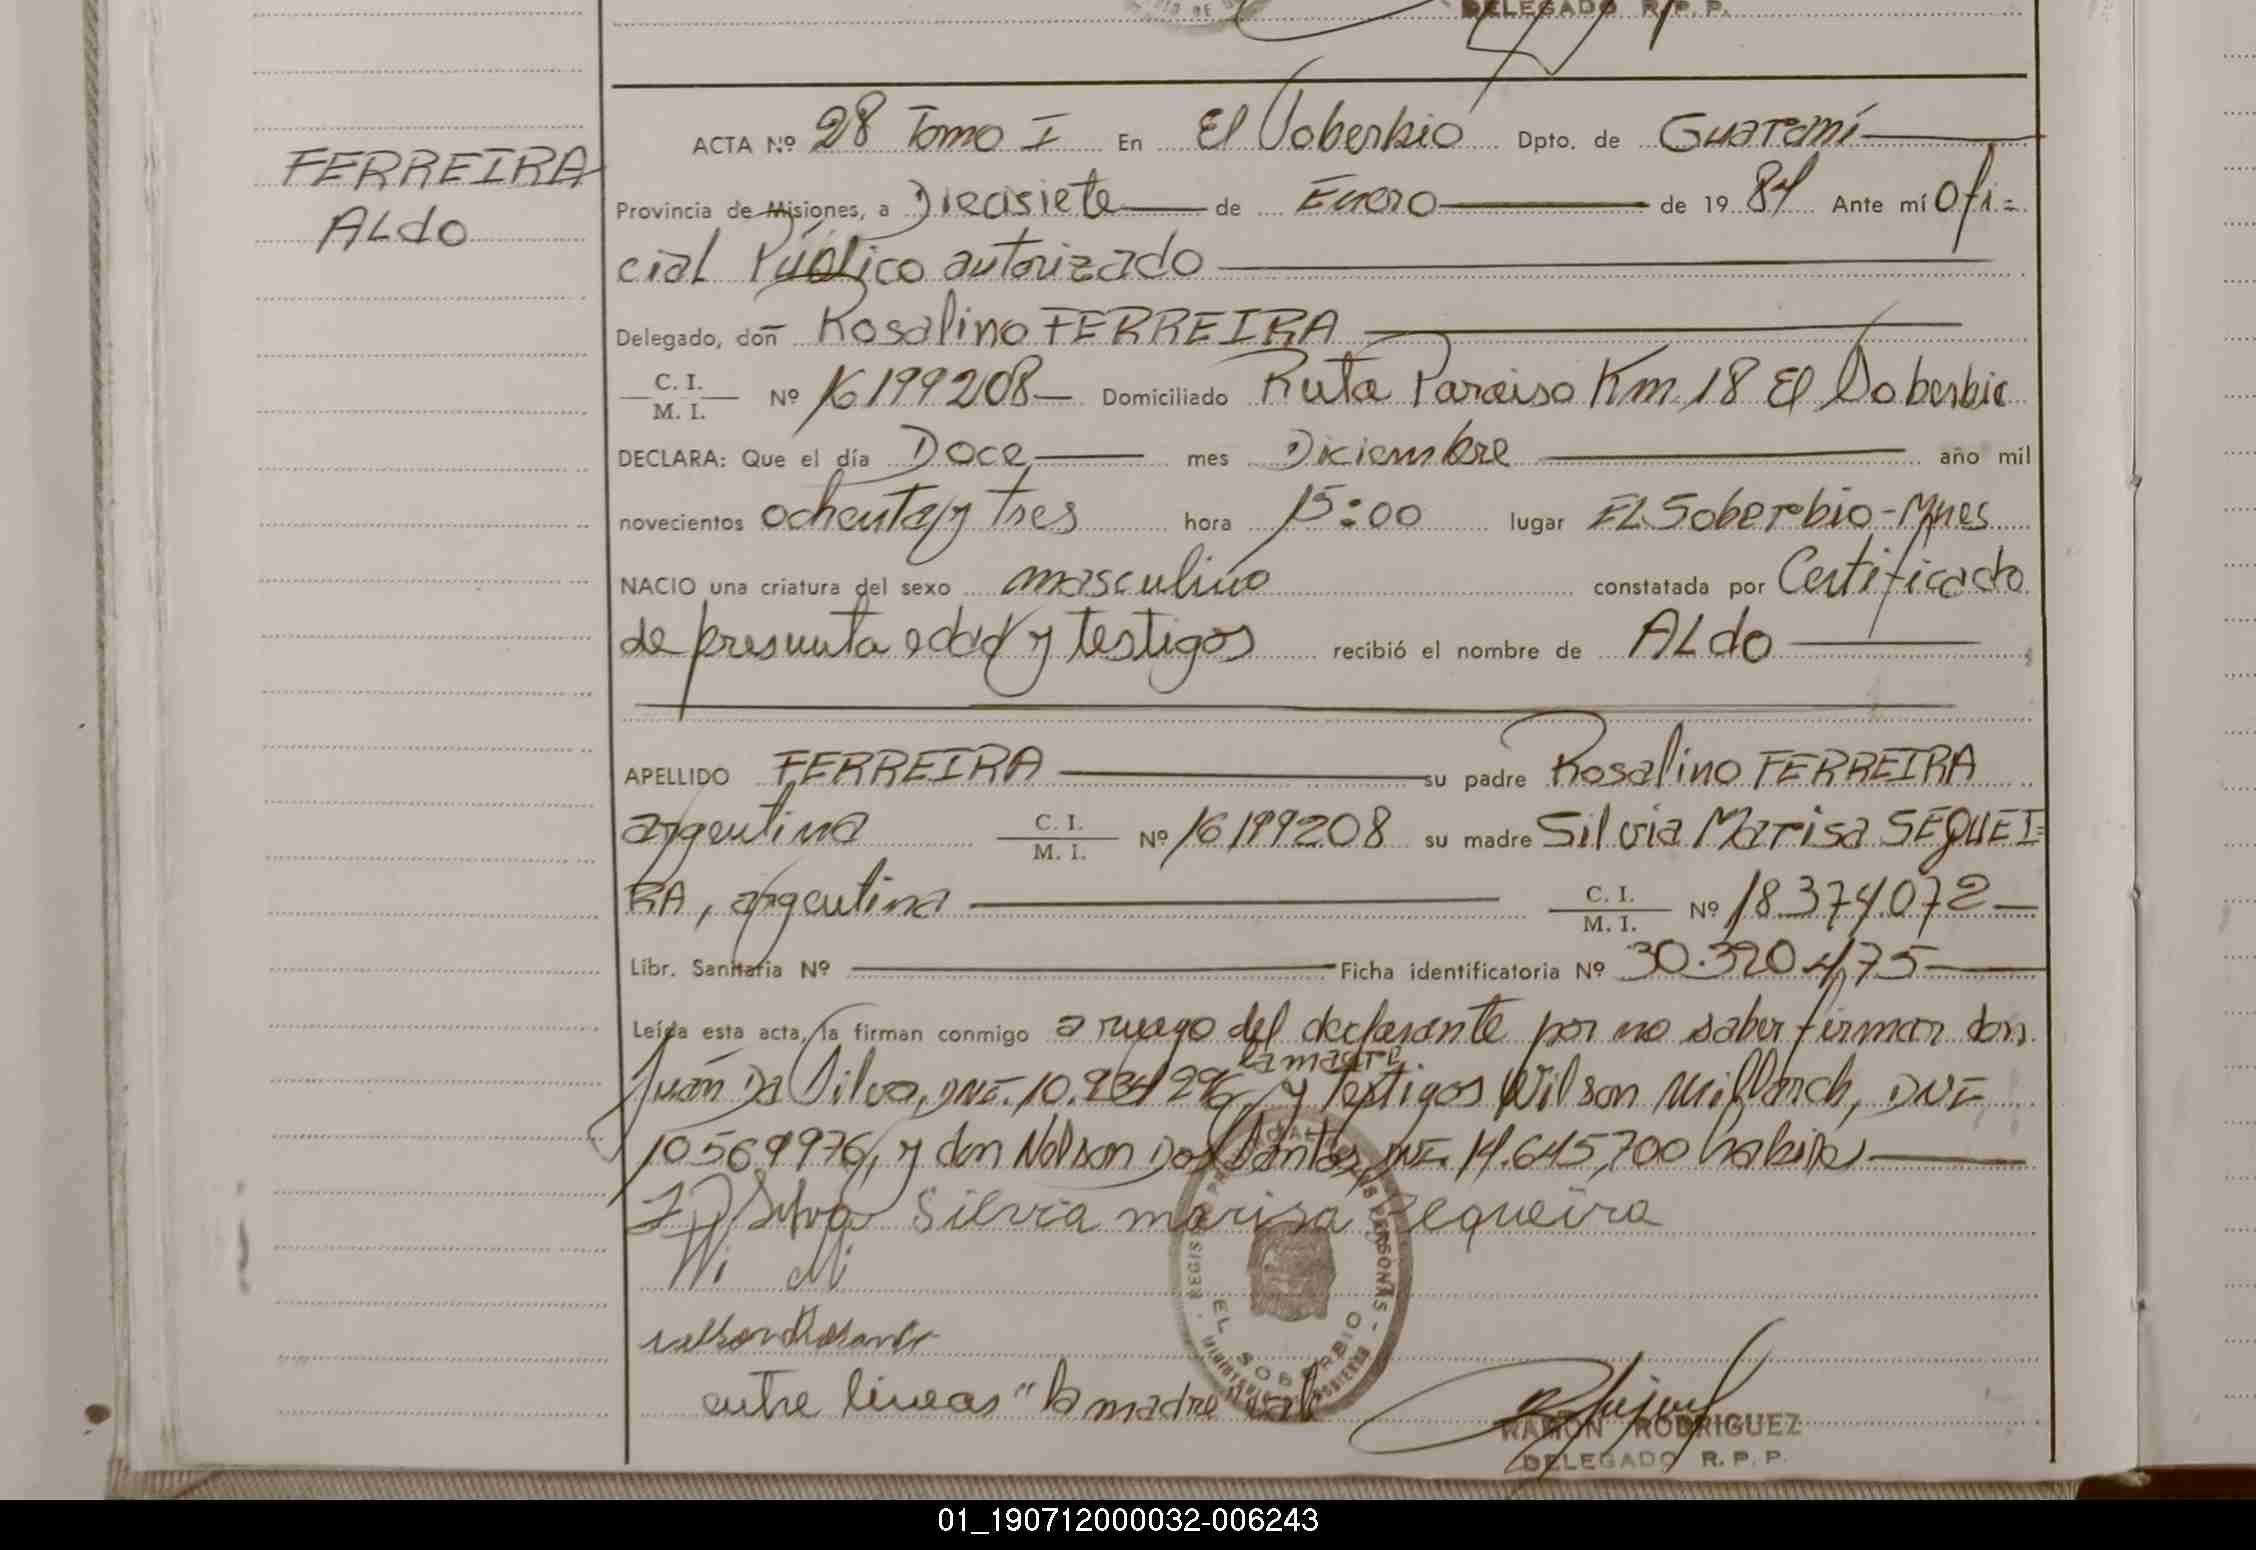 DELEGADO R. P. P.
ACTA Nº 28 Tomo I En El Soberbio Dpto. de Guaraní
FERREIRA
ALdo
Provincia de Misiones, a Diecisiete de Enero de 1984 Ante mí Ofi=
cial Público autorizado
Delegado, don Rosalino FERREIRA
C. I.
M. I. Nº 16199208 Domiciliado Ruta Paraiso Km 18 El Soberbio
DECLARA: Que el día Doce mes Diciembre año mil
novecientos ochenta y tres hora 15:00 lugar EL Soberobio-Mnes
NACIO una criatura del sexo masculino constatada por Certificado
de presunta edad y testigos recibió el nombre de ALdo
APELLIDO FERREIRA su padre Rosalino FERREIRA
argentina C. I. M. I. Nº 16199208 su madre Silvia Marisa SEQUEI=
RA, argentina C. I. M. I. Nº 18.374.072
Libr. Sanitaria Nº Ficha identificatoria Nº 30.390.475
Leída esta acta, la firman conmigo a ruego del declarante por no saber firmar don
la madre
Juan Da Silva, DNI. 10.934296, y testigos Wilson Millarch, DNI
10569976, y don Nelson Dos Santos, DNI. 14.645,700 habiles
J D Silva Silvia marisa Sequeira
Wi Mi
entre líneas "la madre" vale
REGISTRO PROVINCIAL DE LAS PERSONAS
EL SOBERBIO
MINISTERIO DE GOBIERNO
RAMON RODRIGUEZ
DELEGADO R. P. P.
01_190712000032-006243